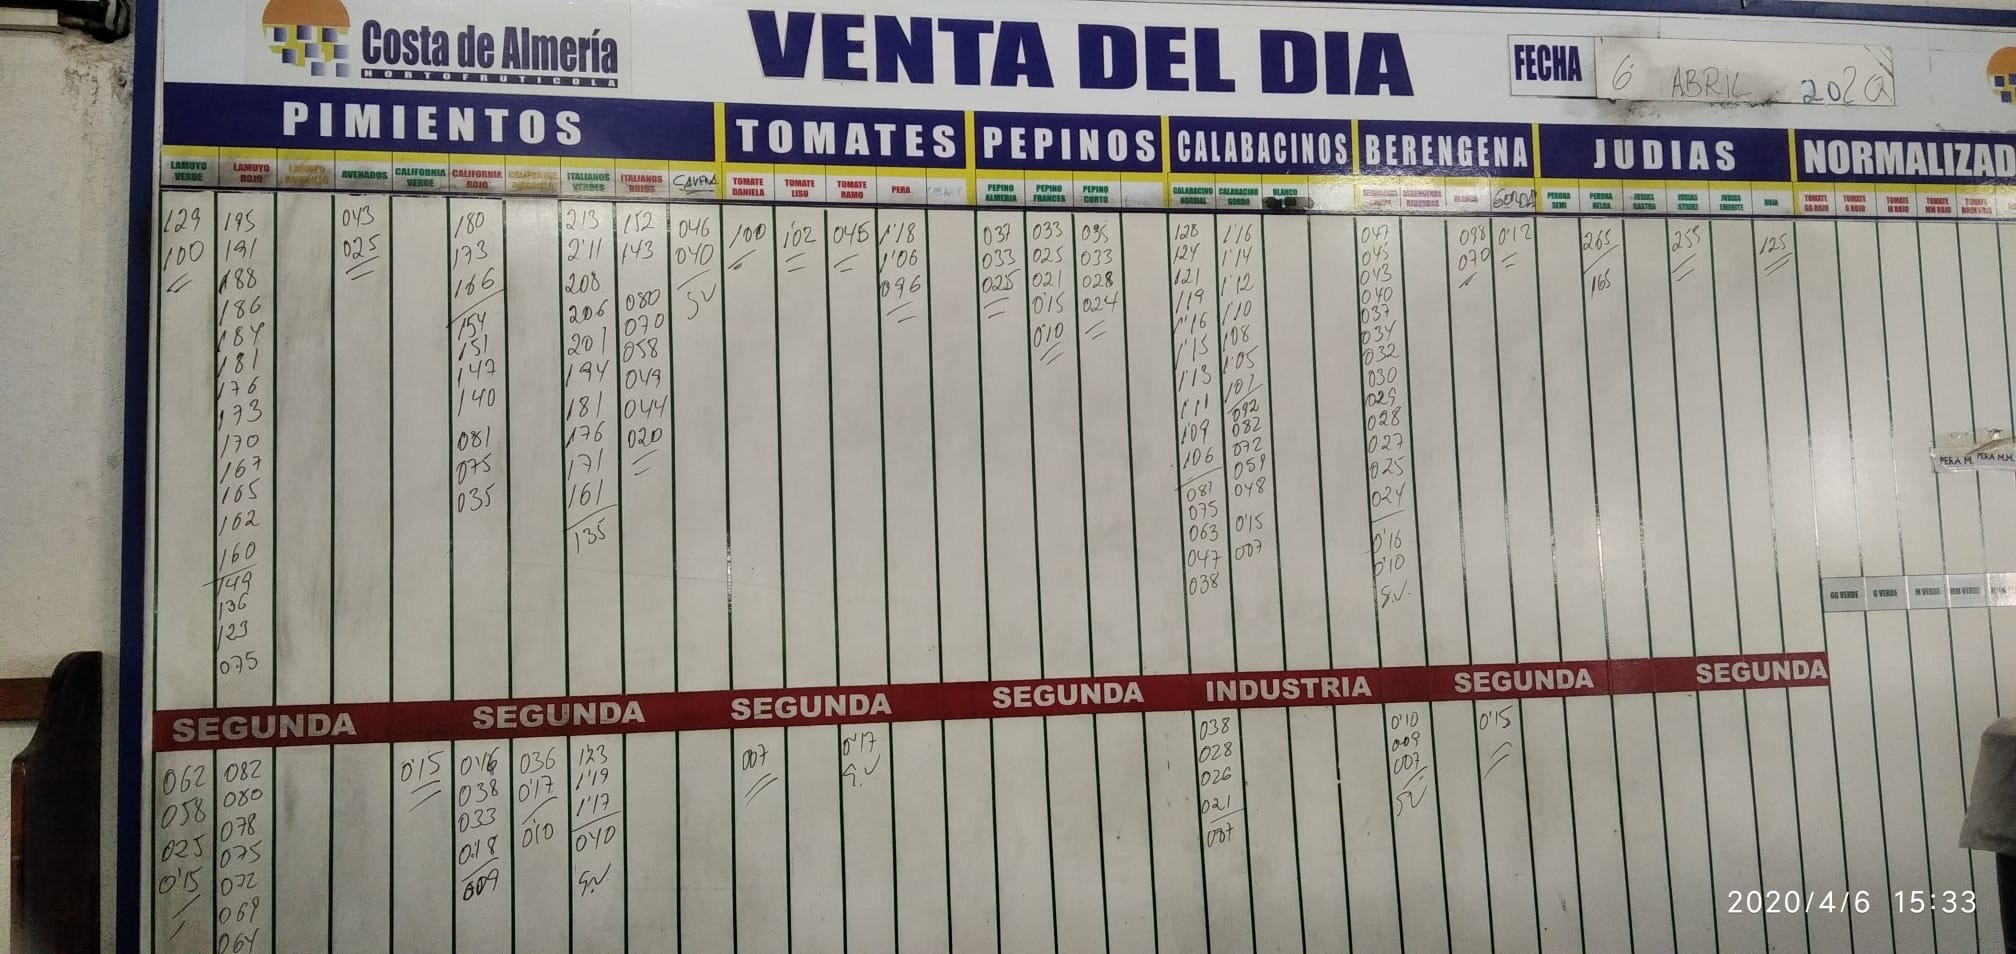 Costa de Almería
HORTOFRUTICOLA
VENTA DEL DIA
FECHA 6 ABRIL 2020
PIMIENTOS TOMATES PEPINOS CALABACINOS BERENGENA JUDIAS NORMALIZAD
LAMUYO VERDE
LAMUYO ROJO
LAMUYO AMARILLO
AVENADOS
CALIFORNIA VERDE
CALIFORNIA ROJO
CALIFORNIA AMARILLO
ITALIANOS VERDES
ITALIANOS ROJOS
TOMATE DANIELA
TOMATE LISO
TOMATE RAMO
PERA
PEPINO ALMERIA
PEPINO FRANCES
PEPINO CORTO
CALABACINO NORMAL
CALABACINO GORDO
BLANCO
BLANCA
GORDA
PERONA SEMI
PERONA HELDA
JUDIAS STRIKE
ROJA
TOMATE GG ROJO
TOMATE G ROJO
TOMATE M ROJO
TOMATE MM ROJO
129
100
195
191
188
186
184
181
176
173
170
167
165
162
160
149
136
123
075
043
025
180
173
166
154
151
147
140
081
075
035
213
2'11
208
206
201
194
181
176
171
161
135
152
143
080
070
058
049
044
020
046
040
SV
100
1'02
045
1'18
1'06
096
037
033
025
033
025
021
0'15
0'10
035
033
028
024
128
124
121
119
1'16
1'15
1'13
1'11
1'09
106
081
075
063
047
038
1'16
1'14
1'12
1'10
1'08
1'05
101
092
082
072
059
048
0'15
007
047
045
043
040
037
034
032
030
029
028
027
025
024
0'16
0'10
S.V.
098
070
0'12
265
165
255
125
PERA M.
PERA M.M.
GG VERDE
G VERDE
M VERDE
MM VERDE
SEGUNDA SEGUNDA SEGUNDA SEGUNDA INDUSTRIA SEGUNDA SEGUNDA
062
058
025
0'15
082
080
078
075
072
069
064
0'15
038
033
018
009
036
0'17
0'10
123
1'19
1'17
040
S.V.
007
0'17
S.V
038
028
026
021
007
0'10
009
007
SV
0'15
2020/4/6 15:33